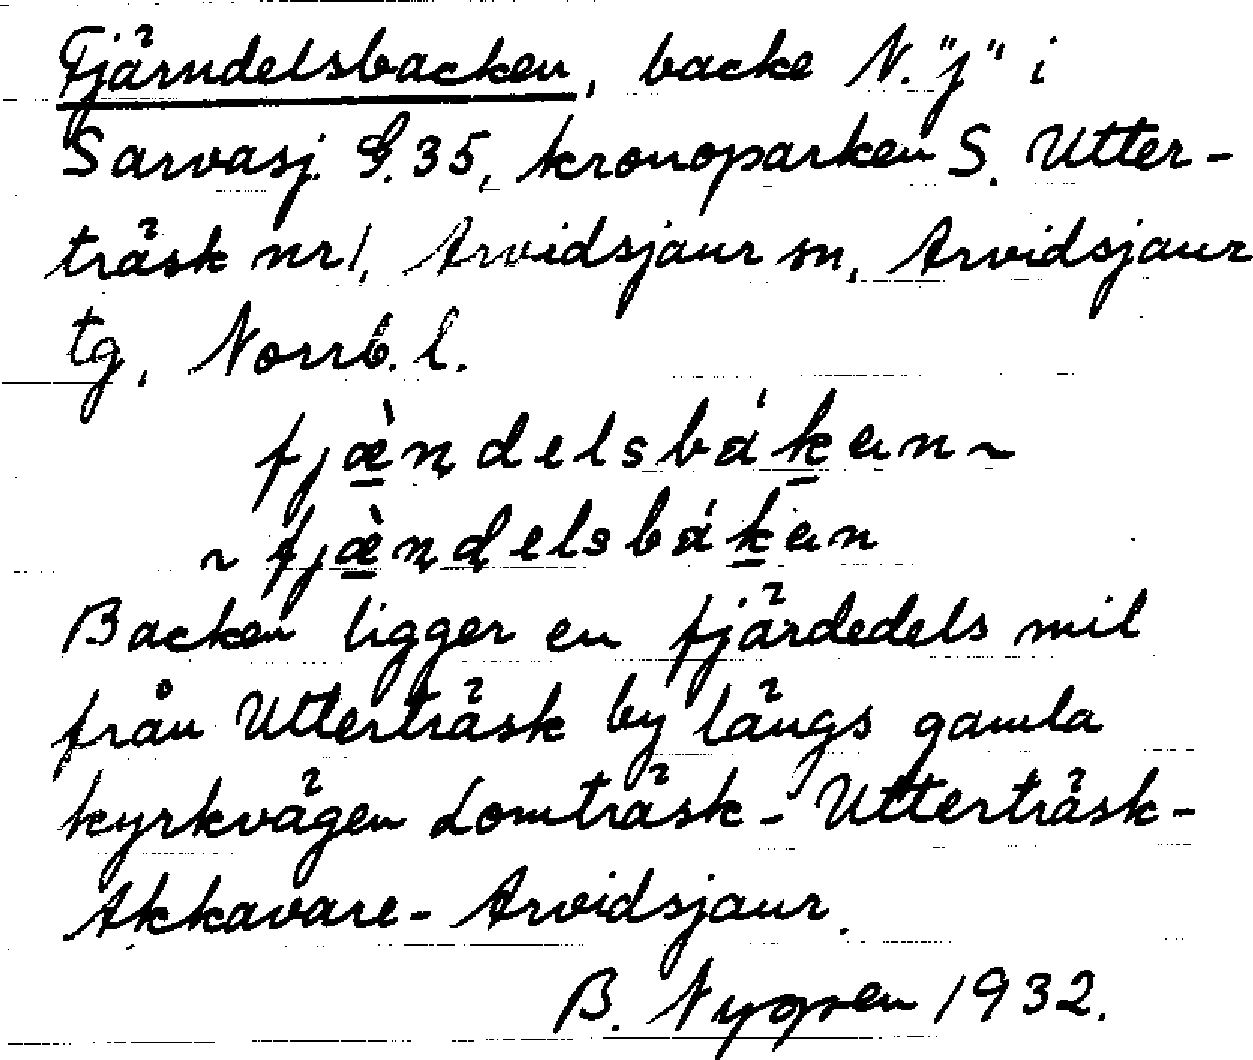 Fjärndelsbacken, backe N. "j" i
Sarvasj. G.35, kronoparken S. Utter-
träsk nr 1, Arvidsjaur sn, Arvidsjaur
tg, Norrb. l.
fjæ̀ṇdelsbáken ~
~ fjæ̀ṇḍelsbáken
Backen ligger en fjärdedels mil
från Utterträsk by längs gamla
kyrkvägen Lomträsk - Utterträsk -
Akkavare - Arvidsjaur.
B. Nygren 1932.